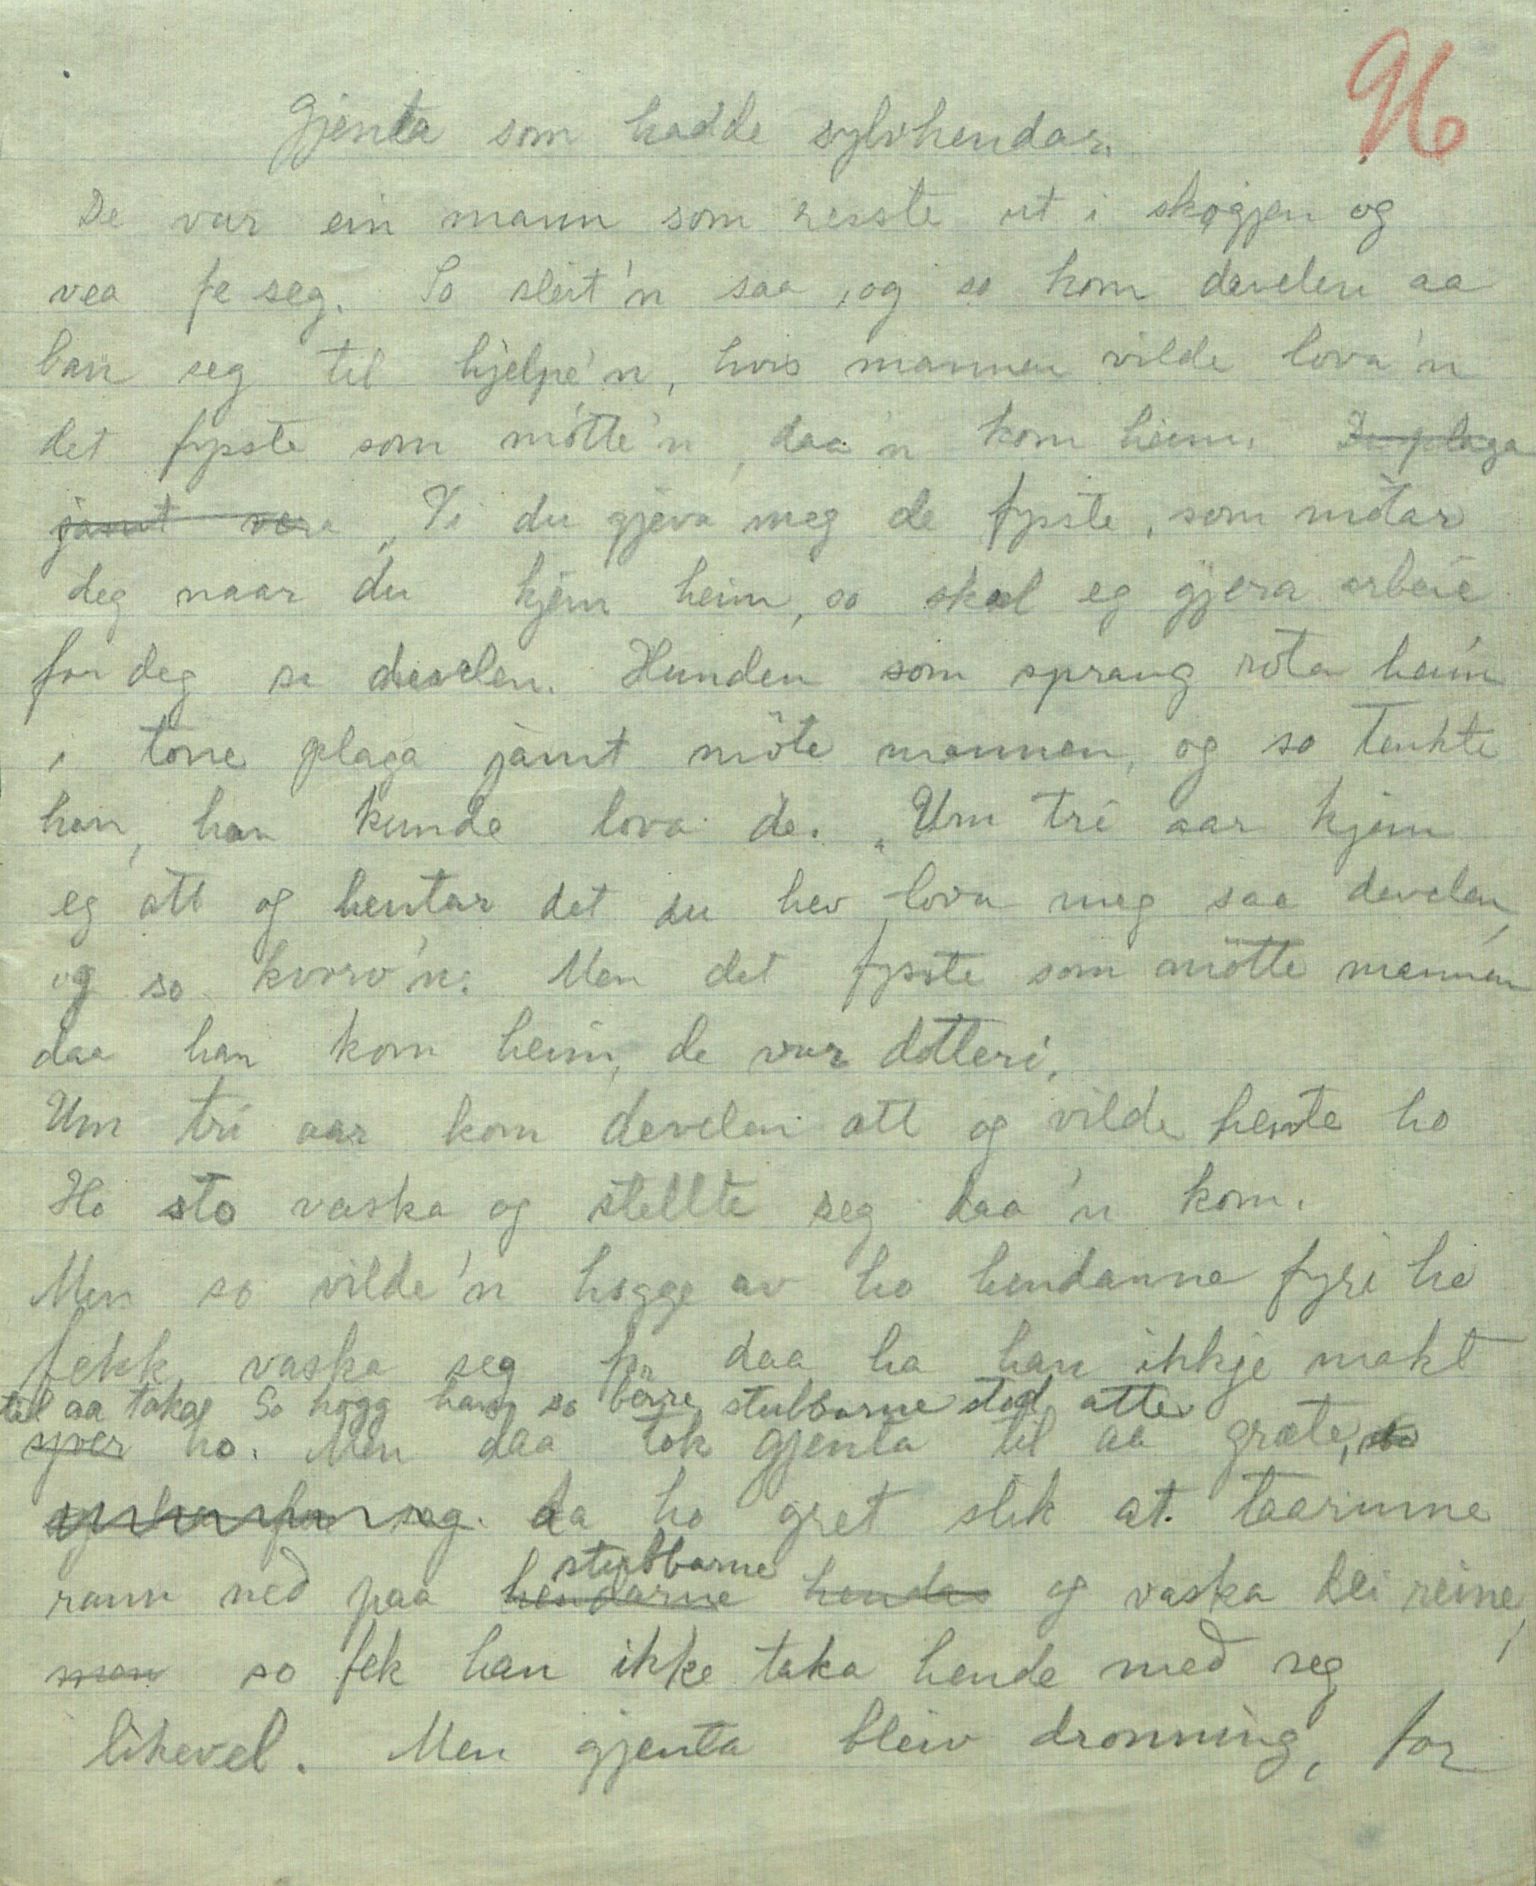 96
Gjenta som hadde sylvhendar.
De var ein mann som reiste ut i skogjen og
vea fe seg. So sleit'n saa, og so kom develen aa
bau seg til hjelpe'n, hvis mannen vilde lova'n
det fyrste som møtte'n, daa'n kom heim. De plaga
jamt vera „Vi du gjeva meg de fyrste, som møtar
deg naar du kjem heim, so skal eg gjera arbeie
for deg sa develen. Hunden som sprang rota heim
i tone plaga jamt møte mannen, og so tenkte
han, han kunde lova de. „Um tri aar kjem
eg att og hentar det du hev lova meg saa develen,
og so kvorv'n. Men det fyrste som møtte mannen
daa han kom heim, de var dotteri.
Um tri aar kom develen att og vilde hente ho
Ho sto vaska og stellte seg daa'n kom.
Men so vilde'n hogge av ho hendanne fyri ho
fekk vaska seg for daa ha han ikkje makt
til aa taka So hogg han so berre stubbarne stod atte
yver ho. Men daa tok gjenta til aa græte, so
seg. da ho gret slik at taarinne
rann ned paa hendarne hendes stubbarne og vaska dei reine,
men so fek han ikke taka hende med seg
likevel. Men gjenta bleiv dronning, for